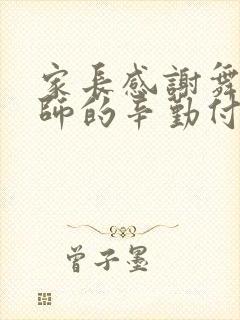 家長感謝舞
師的辛勤付
曾子墨